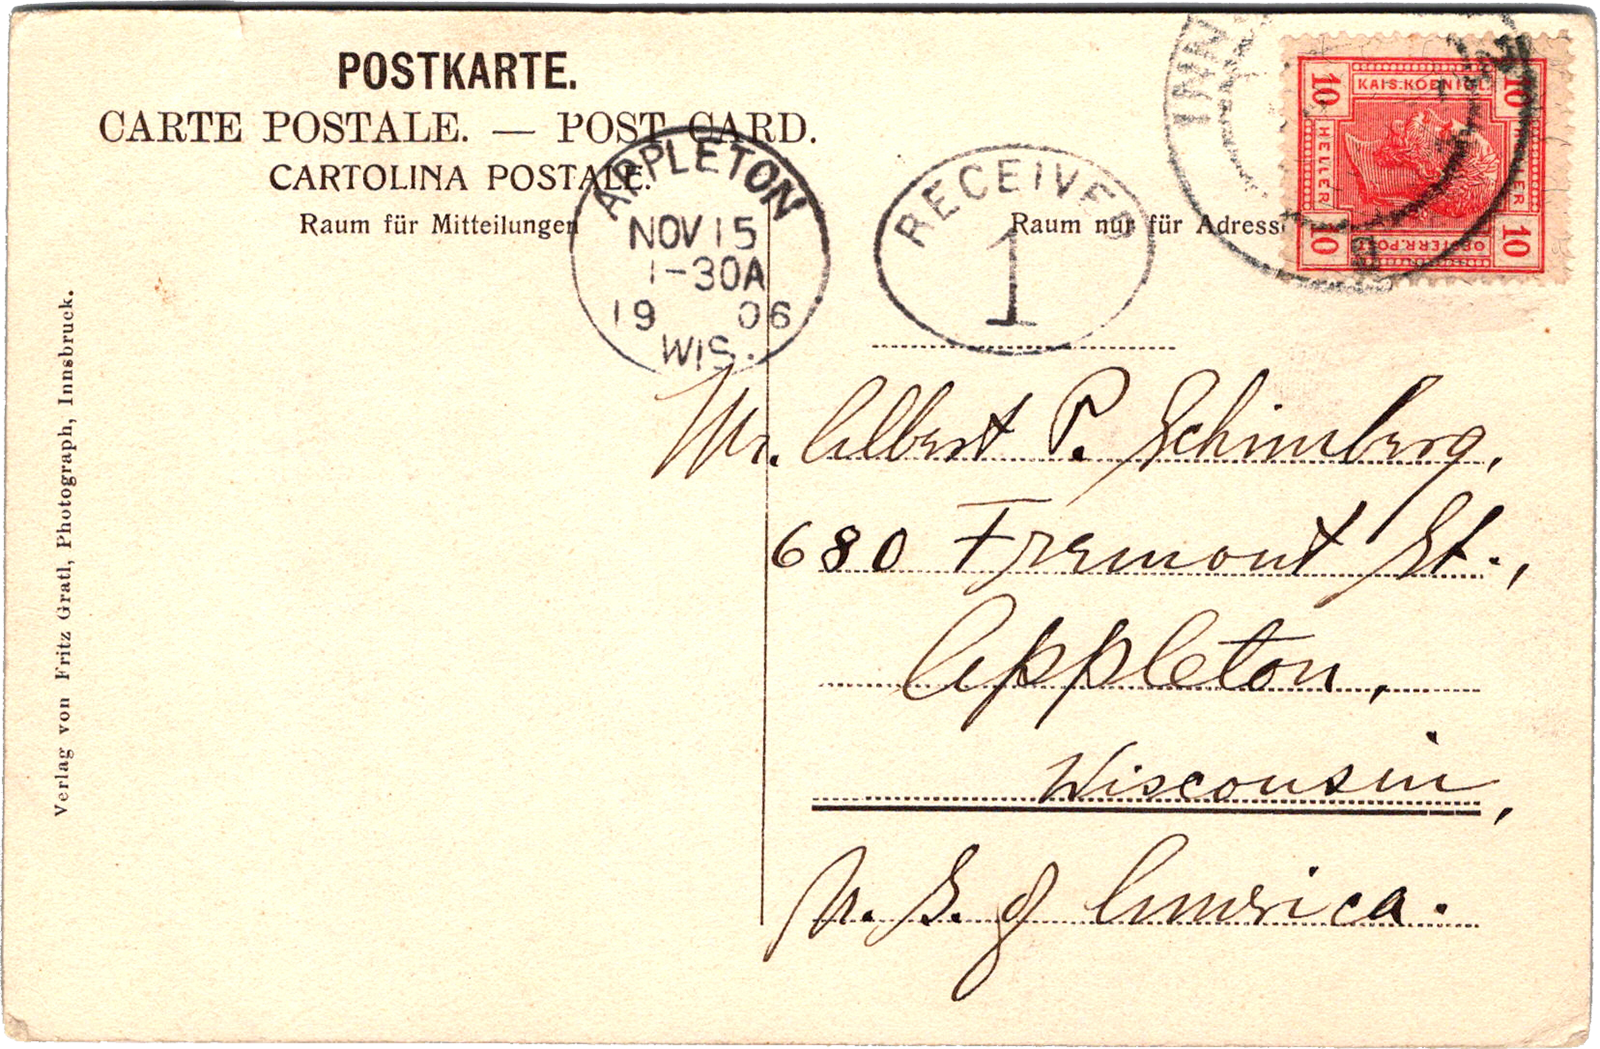 POSTKARTE.
CARTE POSTALE. — POST CARD.
CARTOLINA POSTALE.
Raum für Mitteilungen
Raum nur für Adresse
APPLETON
NOV 15
1-30A
19 06
WIS.
RECEIVED
1
INN
KAIS.KOENIGL.
10 HELLER 10
10 HELLER 10
OESTERR.POST
Mr. Albert P. Schimberg,
680 Fremont St.,
Appleton,
Wisconsin,
U. S. of America.
Verlag von Fritz Gratl, Photograph, Innsbruck.